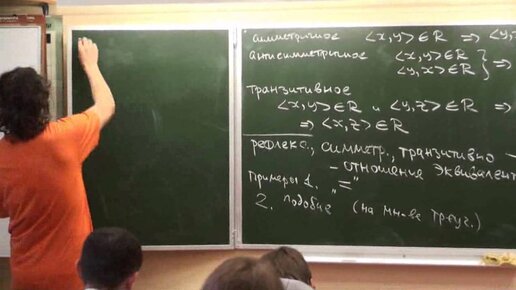 симметричное <x,y>∈R ⇒ <y,
антисимметричное <x,y>∈R }
<y,x>∈R } ⇒
транзитивное
<x,y>∈R и <y,z>∈R ⇒
⇒ <x,z>∈R
рефлекс., симметр., транзитивно –
– отношение эквивалент
Примеры 1. „="
2. подобие (на мн-ве треуг.)